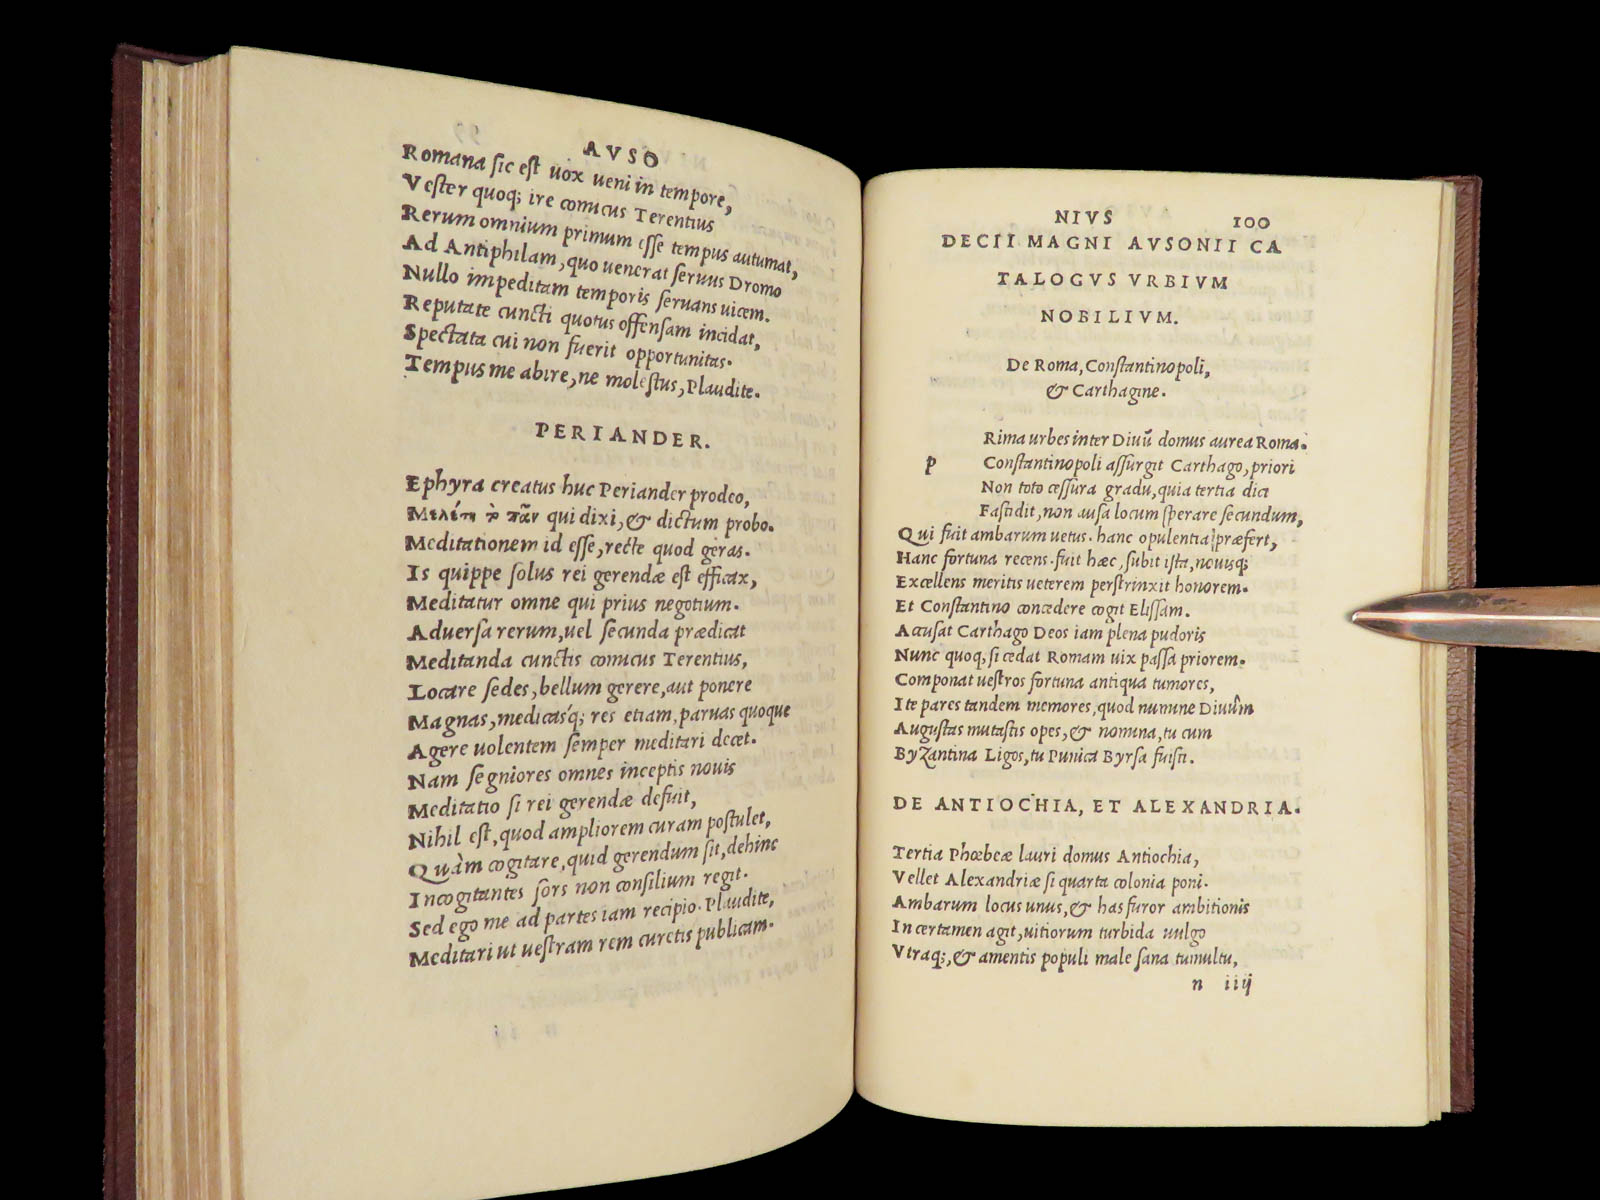 AVSO
Romana sic est uox ueni in tempore,
Vester quoq; ire comicus Terentius
Rerum omnium primum esse tempus autumat,
Ad Antiphilam, quo uenerat seruus Dromo
Nullo impeditam temporis seruans uicem.
Reputate cuncti quotus offensam incidat,
Spectata cui non fuerit opportunitas.
Tempus me abire, ne molestus, Plaudite.
PERIANDER.
Ephyra creatus huc Periander prodeo,
Μελέτη τὸ πᾶν qui dixi, & dictum probo.
Meditationem id esse, recte quod geras.
Is quippe solus rei gerendæ est efficax,
Meditatur omne qui prius negotium.
Aduersa rerum, uel secunda prædicat
Meditanda cunctis comicus Terentius,
Locare sedes, bellum gerere, aut ponere
Magnas, medicasq; res etiam, paruas quoque
Agere uolentem semper meditari decet.
Nam segniores omnes inceptis nouis
Meditatio si rei gerendæ defuit,
Nihil est, quod ampliorem curam postulet,
Quàm cogitare, quid gerendum sit, dehinc
Incogitantes sors non consilium regit.
Sed ego me ad partes iam recipio. Plaudite,
Meditari ut uestram rem curetis publicam.
NIVS 100
DECII MAGNI AVSONII CA
TALOGVS VRBIVM
NOBILIVM.
De Roma, Constantinopoli,
& Carthagine.
Rima urbes inter Diuū domus aurea Roma.
p Constantinopoli assurgit Carthago, priori
Non toto cessura gradu, quia tertia dici
Fastidit, non ausa locum sperare secundum,
Qui fuit ambarum uetus. hanc opulentia præfert,
Hanc fortuna recens. fuit hæc, subit ista, nouisq;
Excellens meritis ueterem perstrinxit honorem.
Et Constantino concedere cogit Elissam.
Accusat Carthago Deos iam plena pudoris
Nunc quoq; si cedat Romam uix passa priorem.
Componat uestros fortuna antiqua tumores,
Ite pares tandem memores, quod numine Diuûm
Augustas mutastis opes, & nomina, tu cum
Byzantina Ligos, tu Punica Byrsa fuisti.
DE ANTIOCHIA, ET ALEXANDRIA.
Tertia Phœbeæ lauri domus Antiochia,
Vellet Alexandriæ si quarta colonia poni.
Ambarum locus unus, & has furor ambitionis
In certamen agit, uitiorum turbida uulgo
Vtraq;, & amentis populi male sana tumultu,
n iiij